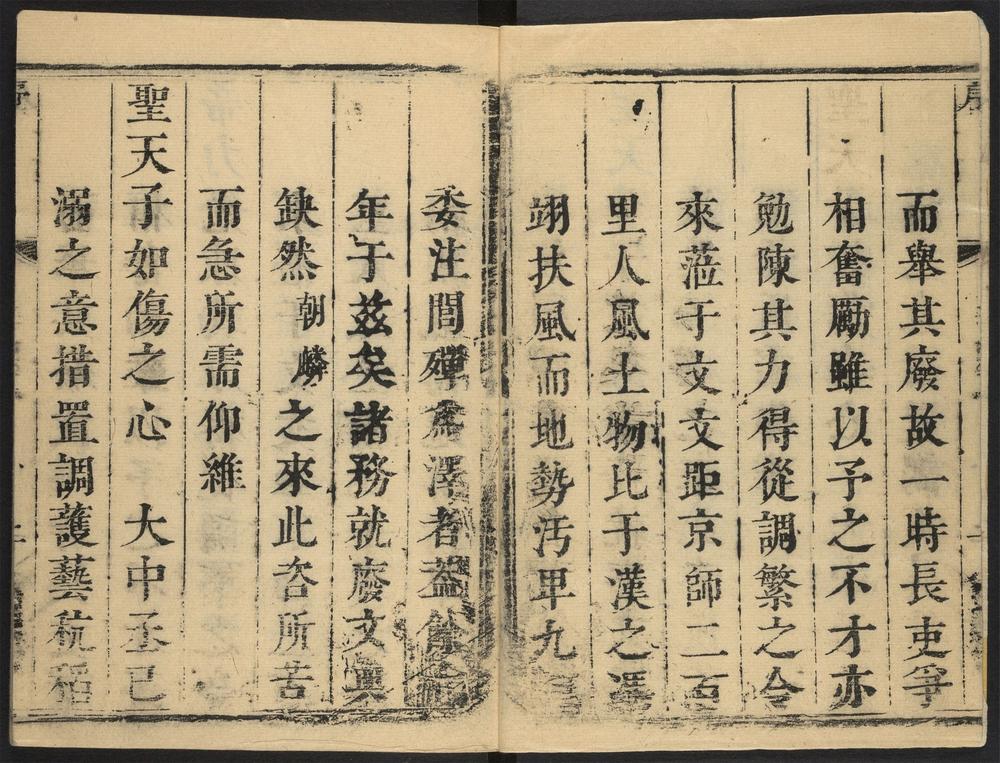 而舉其廢故一時長吏爭
相奮勵雖以予之不才亦
勉陳其力得從調繁之令
來蒞于文文距京師二百
里人風土物比于漢之馮
翊扶風而地勢汚卑九
委注間殫為澤者蓋餘
年于茲矣諸務就廢文
缺然朝麟之來此咨所苦
而急所需仰維
聖天子如傷之心 大中丞已
溺之意措置調護藝秔稻
序
序